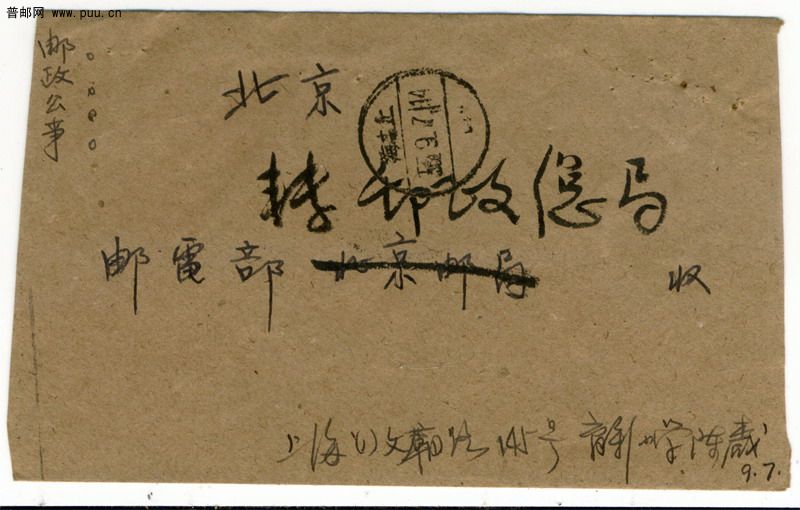 普邮网 www.puu.cn
邮政公事
北京
转邮政总局
邮電部 北京邮局 收
上海 文廟路145号 小学陈
9.7.